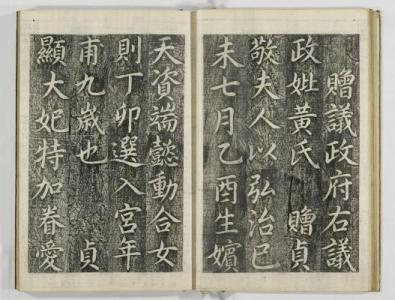 贈議政府右議
政妣黃氏 贈貞
敬夫人以弘治己
未七月乙酉生嬪
天資端懿動合女
則丁卯選入宮年
甫九歲也 貞
顯大妃特加眷愛